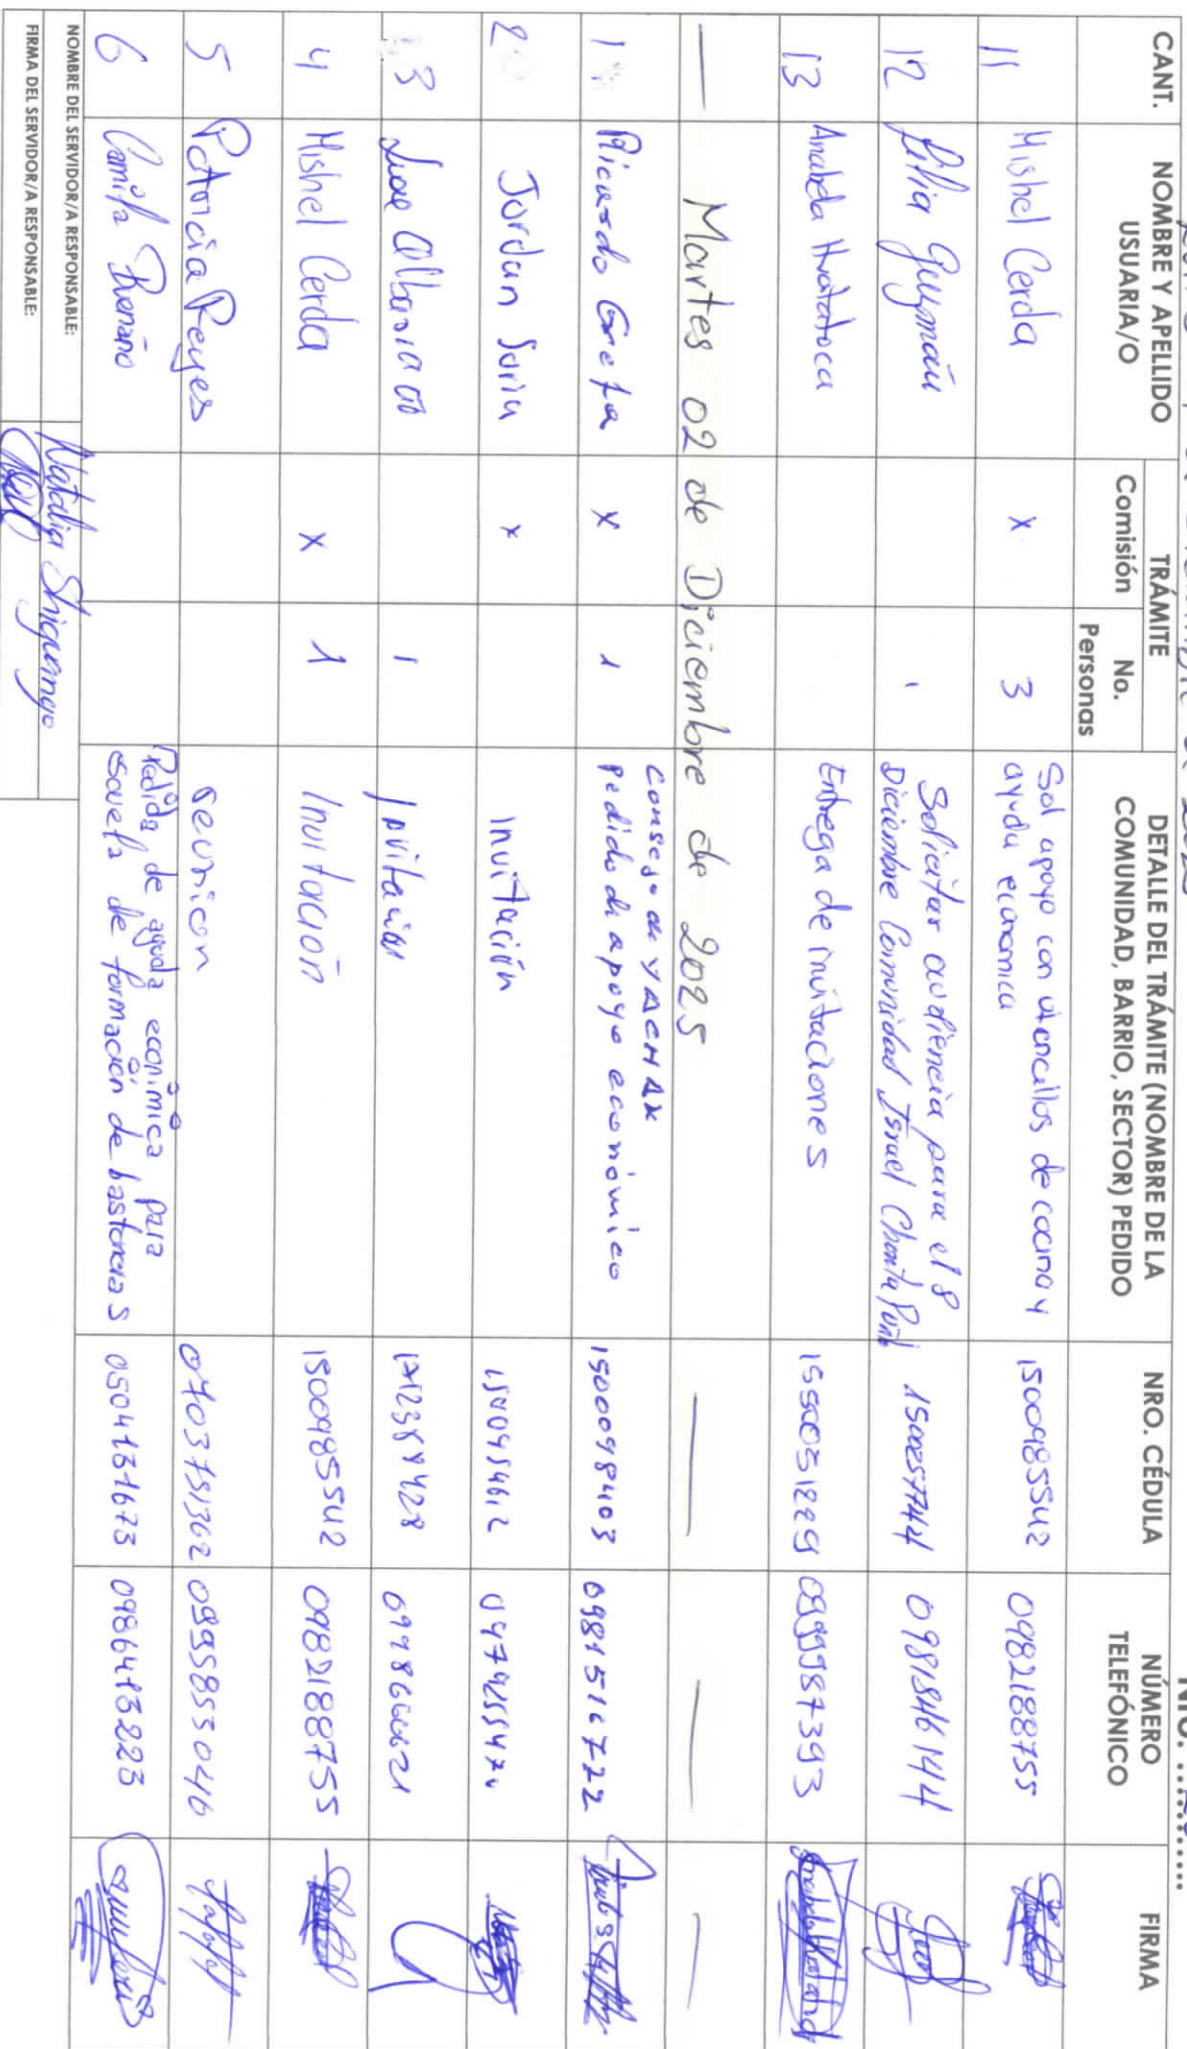 CANT. NOMBRE Y APELLIDO USUARIA/O TRÁMITE Comisión No. Personas DETALLE DEL TRÁMITE (NOMBRE DE LA COMUNIDAD, BARRIO, SECTOR) PEDIDO NRO. CÉDULA NÚMERO TELEFÓNICO FIRMA
11 Mishel Cerda x 3 Sol apoyo con utencillos de cocina y
ayuda economica 1500985542 0982188755
12 Lilia Guzmán 1 Solicitar audiencia para el 8
Diciembre Comunidad Israel Chonta Punta 1500257744 0981846144
13 Anabela Entrega de invitaciones 1550031229 0999587393
— Martes 02 de Diciembre de 2025 — — —
1 Ricardo Grefa x 1 Consejo de YACHAK
Pedido de apoyo económico 1500098403 0981516722
2 Jordan x Invitación
3 1 Invitación
4 Mishel Cerda x 1 Invitación 1500985542 0982188755
5 Patricia Reyes reunion 0703751362 0995853046
6 Camila Pedida de ayuda económica para
escuela de formación de bastoneras 0504131673 0986413223
NOMBRE DEL SERVIDOR/A RESPONSABLE: Natalia Shiguango
FIRMA DEL SERVIDOR/A RESPONSABLE: